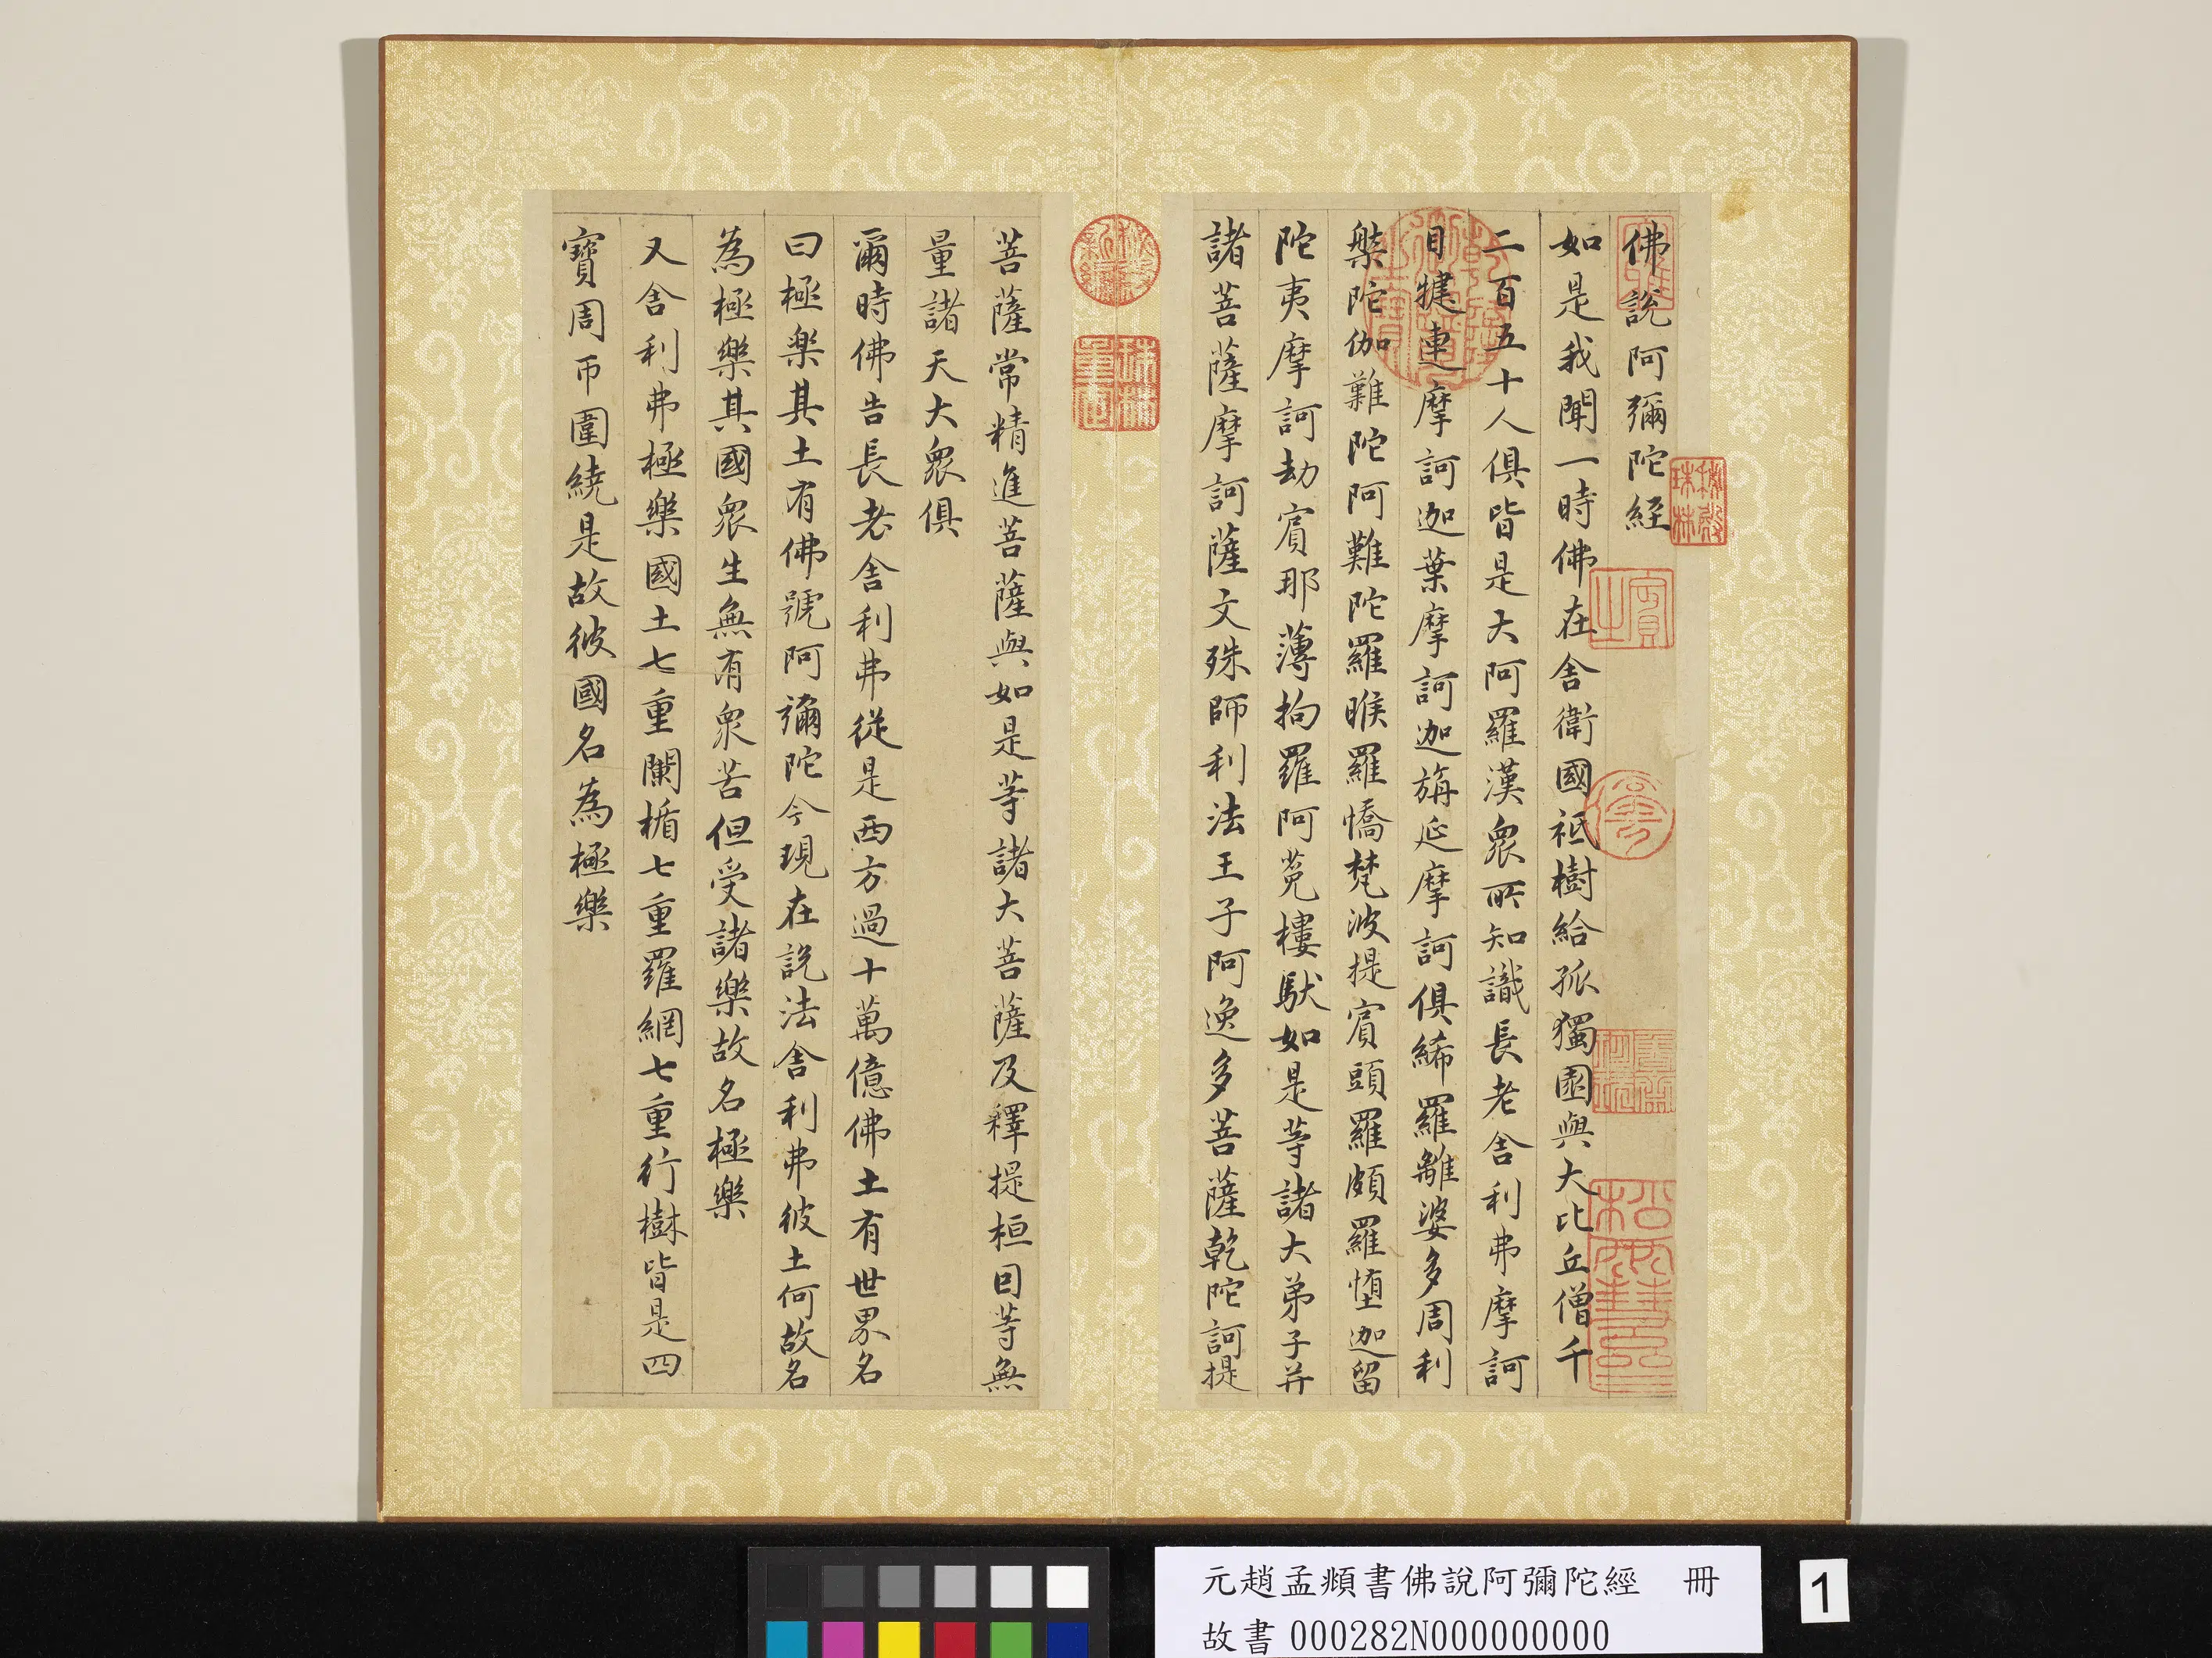 佛說阿彌陀經
如是我聞一時佛在舍衛國祗樹給孤獨園與大比丘僧千
二百五十人俱皆是大阿羅漢眾所知識長老舍利弗摩訶
目犍連摩訶迦葉摩訶迦旃延摩訶俱絺羅離婆多周利
槃陀伽難陀阿難陀羅睺羅憍梵波提賓頭羅頗羅墮迦留
陀夷摩訶劫賓那薄拘羅阿㝹樓馱如是等諸大弟子并
諸菩薩摩訶薩文殊師利法王子阿逸多菩薩乾陀訶提
菩薩常精進菩薩與如是等諸大菩薩及釋提桓因等無
量諸天大眾俱
爾時佛告長老舍利弗從是西方過十萬億佛土有世界名
曰極樂其土有佛號阿彌陀今現在說法舍利弗彼土何故名
為極樂其國眾生無有眾苦但受諸樂故名極樂
又舍利弗極樂國土七重闌楯七重羅網七重行樹皆是四
寶周帀圍繞是故彼國名為極樂
乾隆御覽之寶
秘殿珠林
秘殿新編
珠林重定
元趙孟頫書佛說阿彌陀經 冊
故書 000282N000000000
1